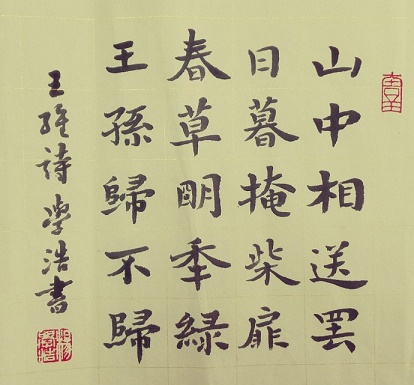 山中相送罷
日暮掩柴扉
春草明秊綠
王孫歸不歸
王維詩學浩書